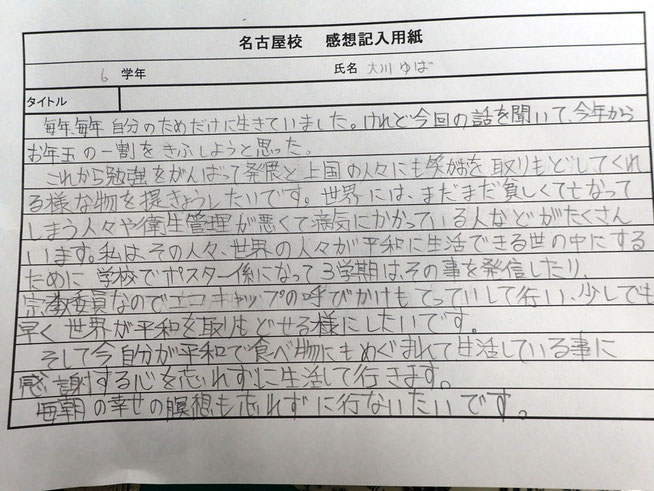 名古屋校 感想記入用紙
6 学年 氏名 大川 ゆば
タイトル
毎年、毎年 自分のためだけに生きていました。けれど今回の話を聞いて、今年から
お年玉の一割をきふしようと思った。
これから勉強をがんばって発展と上国の人々にも笑顔を取りもどしてくれ
る様な物を提きょうしたいです。世界には、まだまだ貧しくて亡なって
しまう人々や衛生管理が悪くて病気にかかっている人などがたくさん
います。私は、その人々、世界の人々が平和に生活できる世の中にする
ために 学校でポスター係になって3学期は、その事を発信したり、
宗教委員なのでエコキャップの呼びかけもてっていして行い、少しでも
早く世界が平和を取りもどせる様にしたいです。
そして今自分が平和で食べ物にもめぐまれて生活している事に
感謝する心を忘れずに生活して行きます。
毎朝の幸せの瞑想も忘れずに行ないたいです。